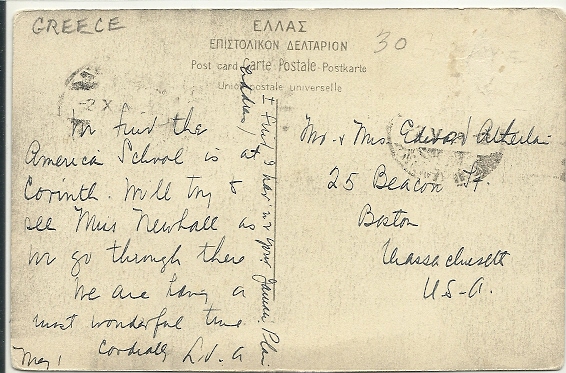 GREECE
ΕΛΛΑΣ
ΕΠΙΣΤΟΛΙΚΟΝ ΔΕΛΤΑΡΙΟΝ
30
Post card Carte Postale Postkarte
Union postale universelle
We find the
America School is at
Corinth. Will try to
see Miss Newhall as
we go through there
We are having a
most wonderful time
Cordially L.V.A
May 1
I find I have not your Jamaica Plain
address)
Mr. & Mrs. Edward
25 Beacon St.
Boston
Massachusetts
U.S-A.